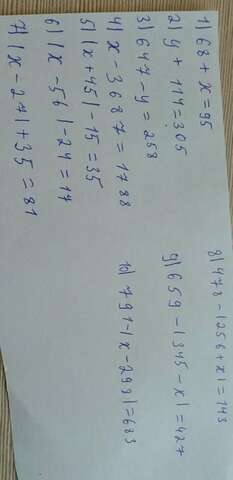 1) 68 + x = 95
2) y + 114 = 305
3) 647 - y = 258
4) x - 3687 = 1788
5) (x + 45) - 15 = 35
6) (x - 56) - 24 = 17
7) (x - 27) + 35 = 81
8) 478 - (256 + x) = 143
9) 659 - (345 - x) = 427
10) 791 - (x - 293) = 683